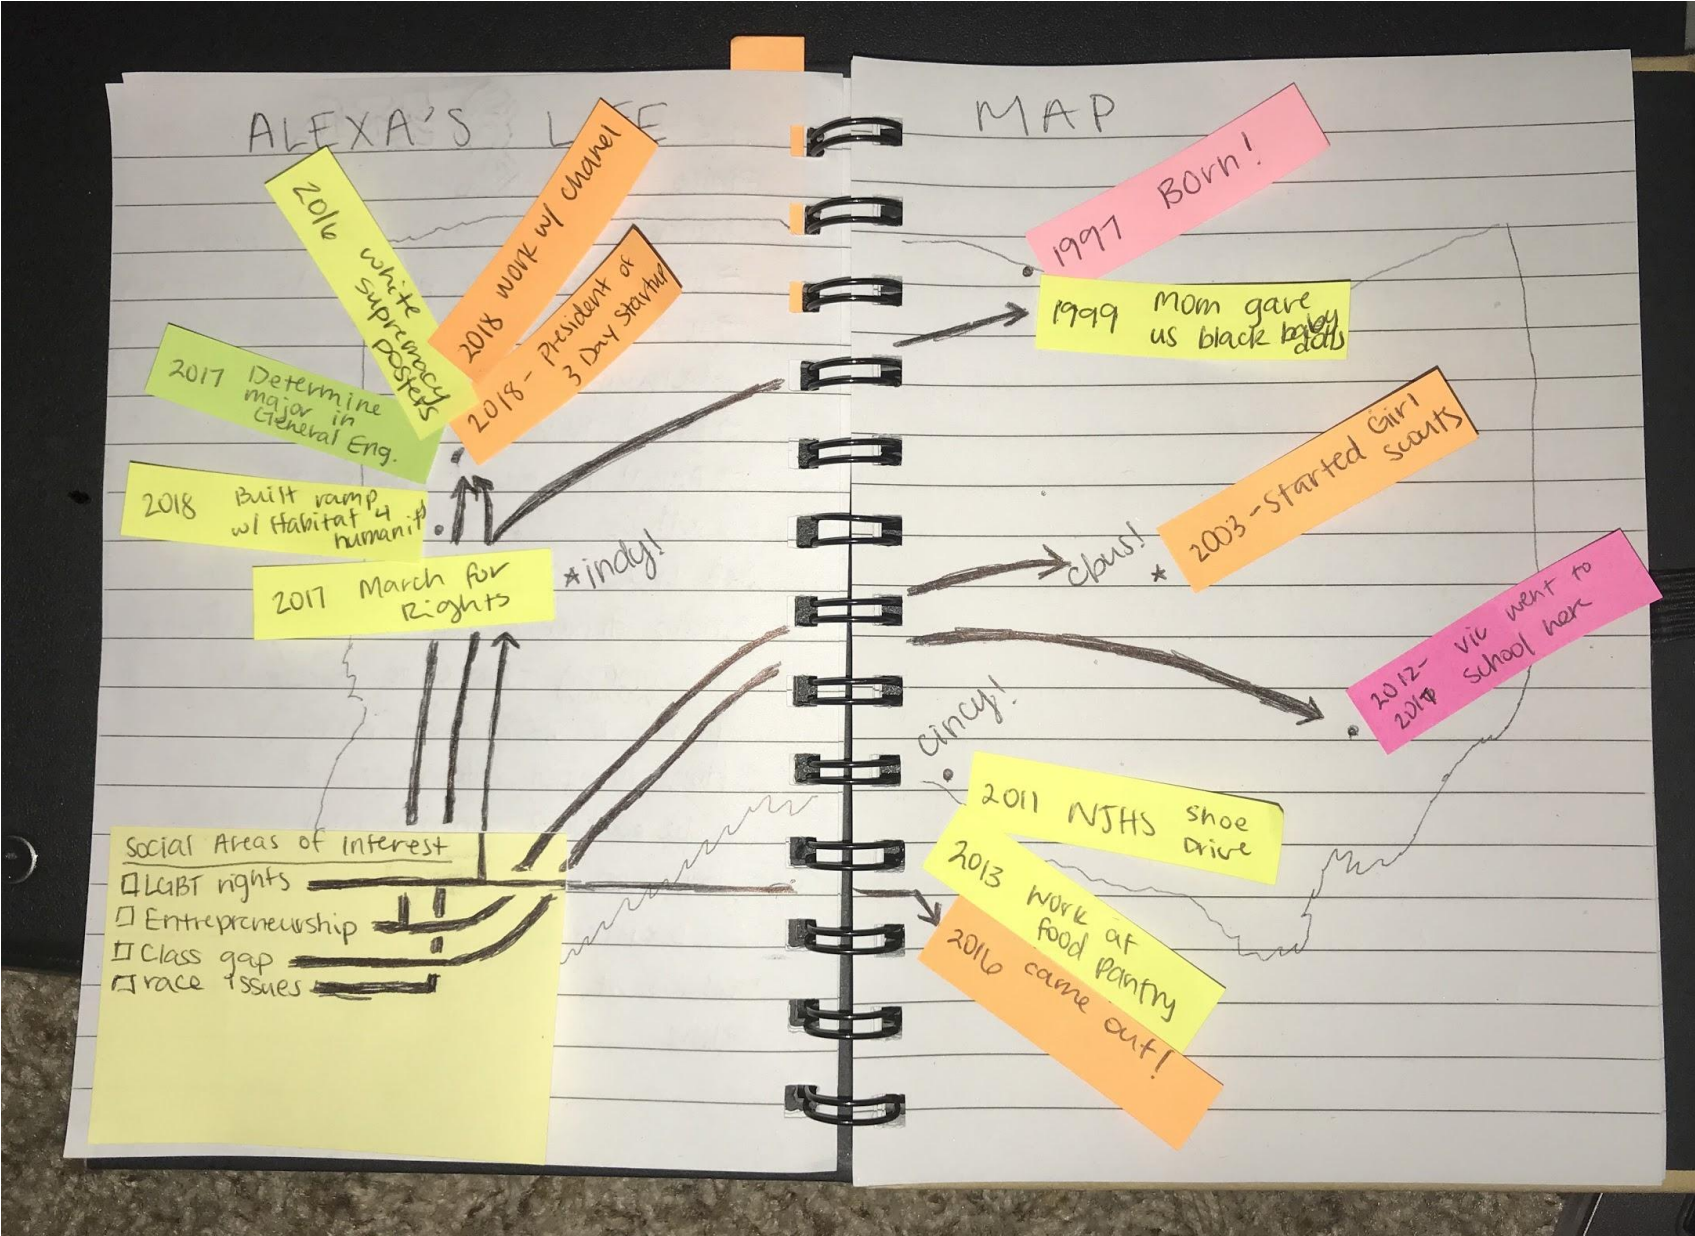 ALEXA'S L FE MAP
2016 white
supremacy
posters
2018 work w/ chanel
2018 - President of
3 Day Startup
2017 Determine
major in
General Eng.
2018 Built ramp
w/ Habitat 4
humanity
2017 March for
Rights
*indy!
Social Areas of Interest
LGBT rights
Entrepreneurship
Class gap
race issues
1997 Born!
1999 Mom gave
us black baby
dolls
cbus!
*
2003 - Started Girl
scouts
2012- vic went to
school here
cincy!
2011 NJHS Shoe
Drive
2013 work at
food pantry
2016 came out!